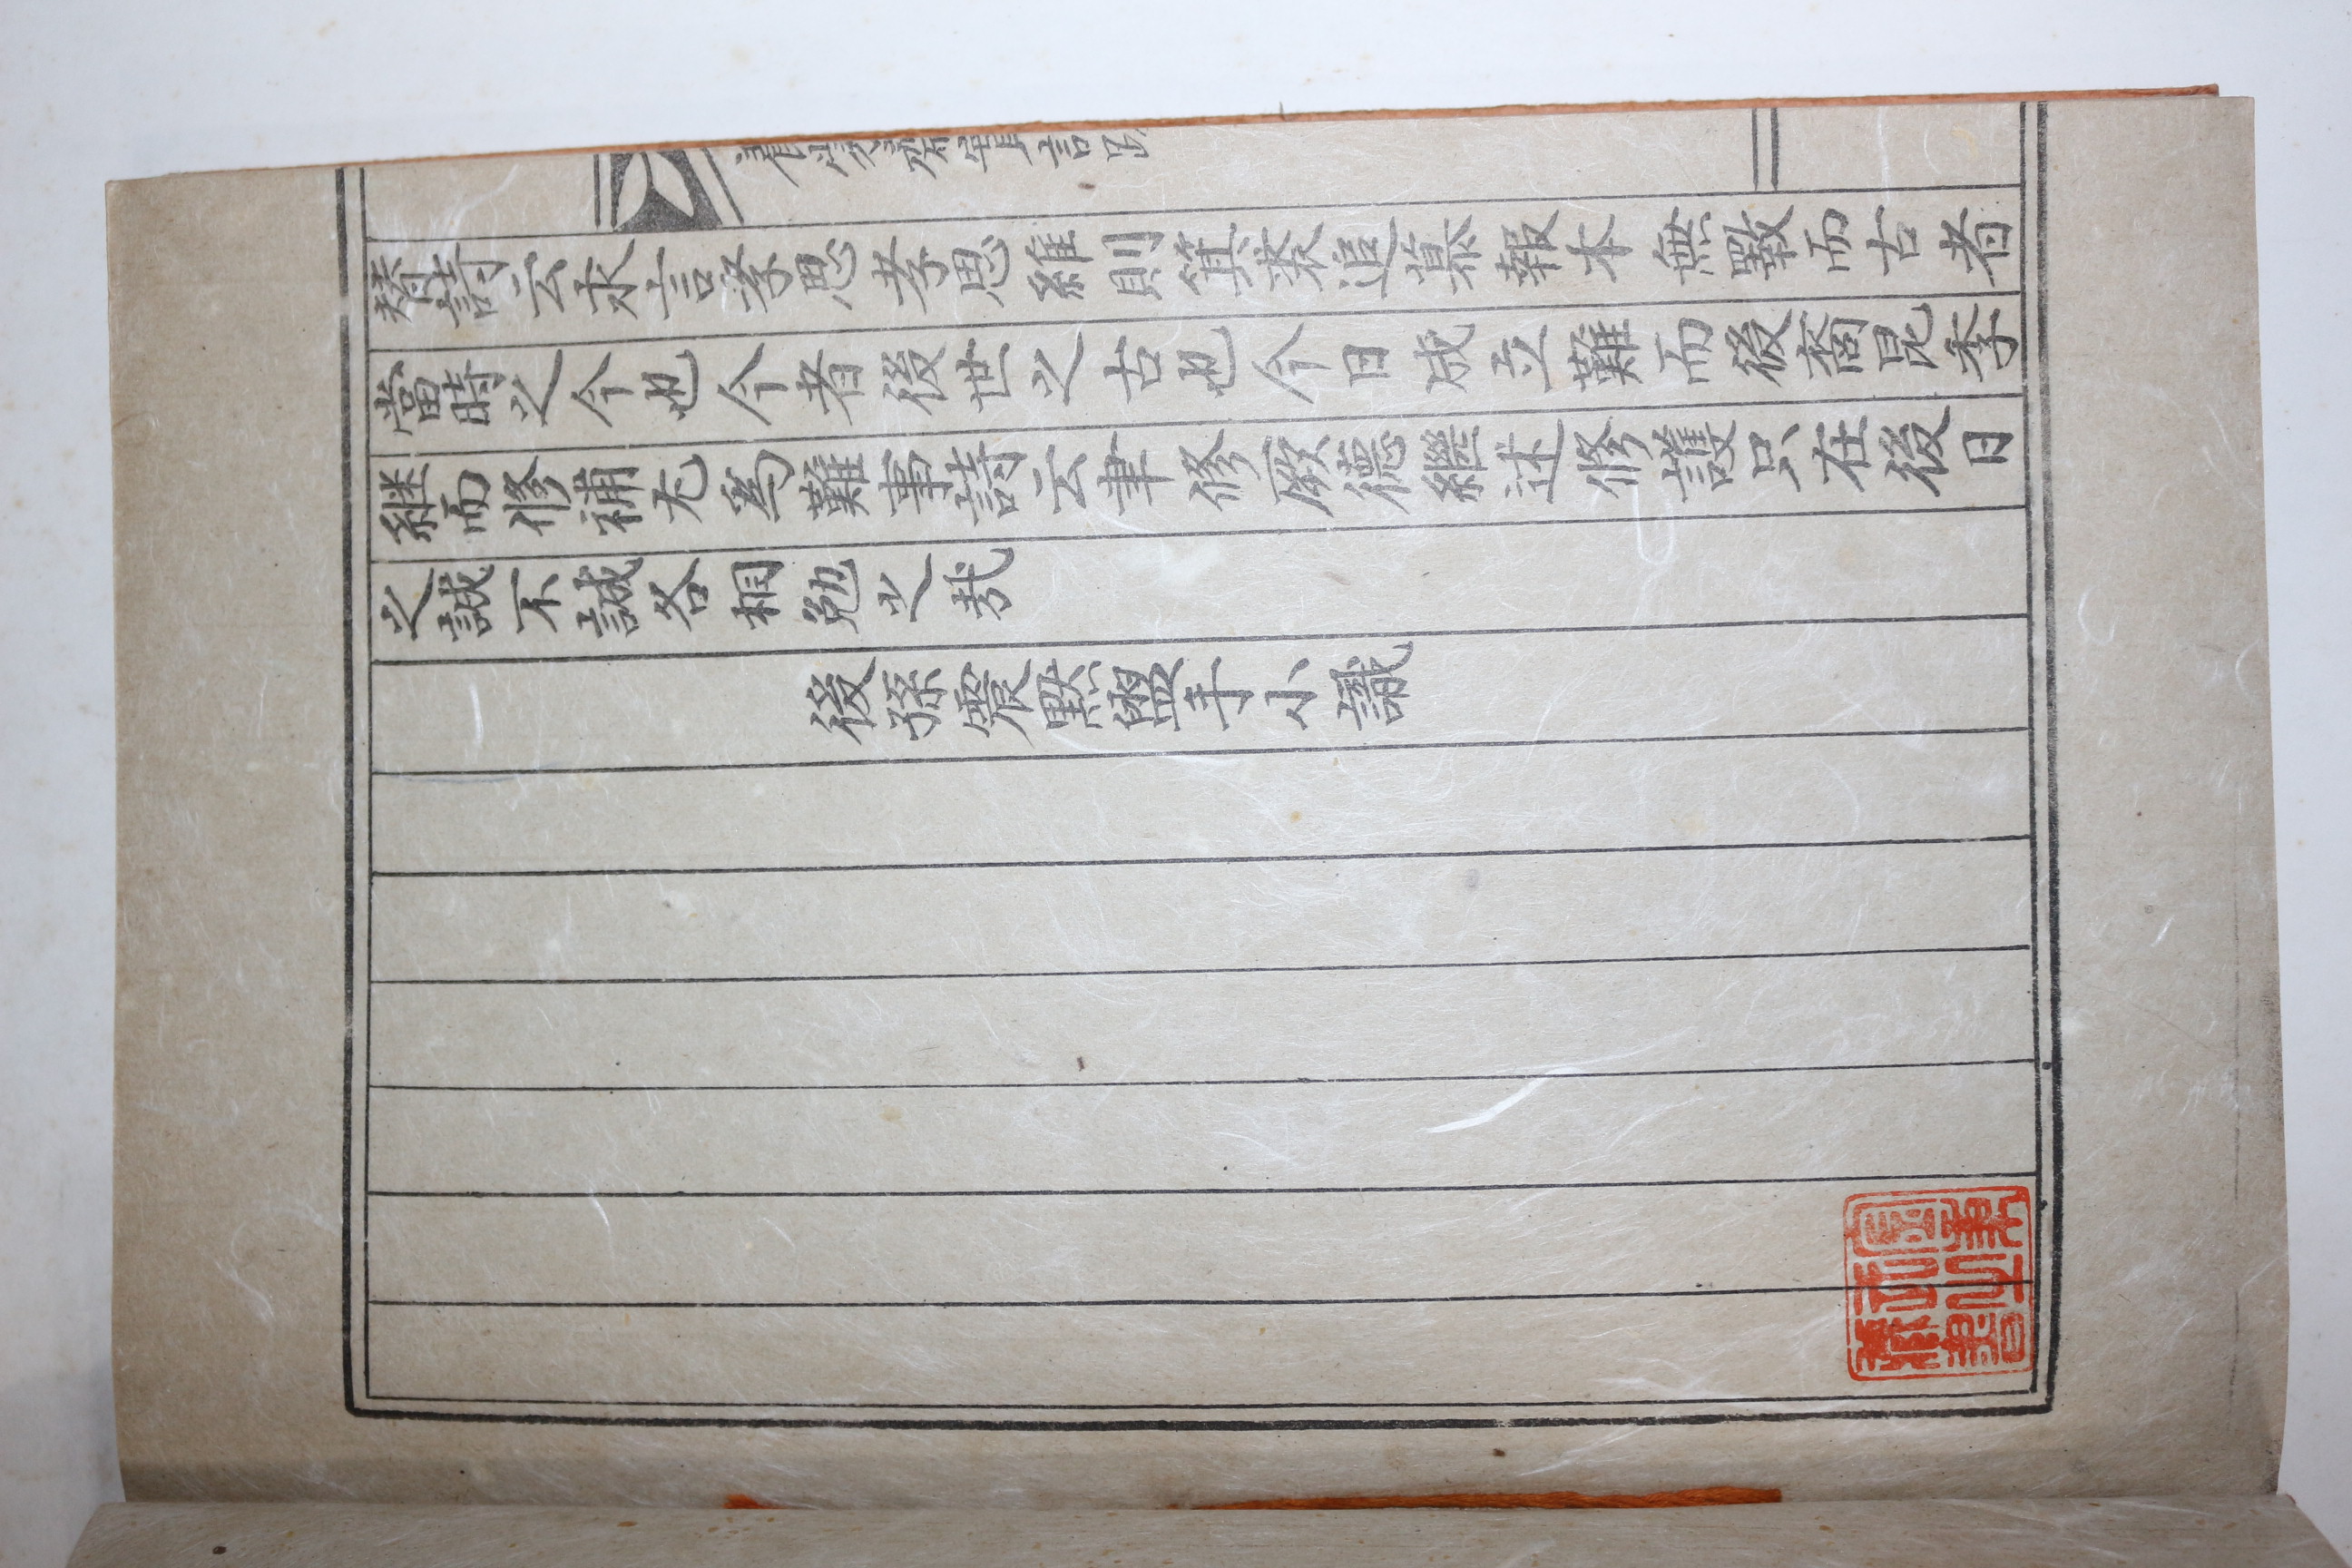 養蒙齋實記跋
替詩云永言孝思孝思維則箕裘追慕報本無斁而古者
當時之今也今者後世之古也今日成立難而後裔昆季
継而修補尤爲難事詩云聿修厥德繼述修護只在後日
之誠不誠各相勉之哉
後孫震默盥手小識
藏書